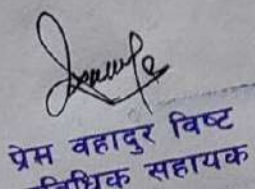 प्रेम वहादुर विष्ट
सहायक